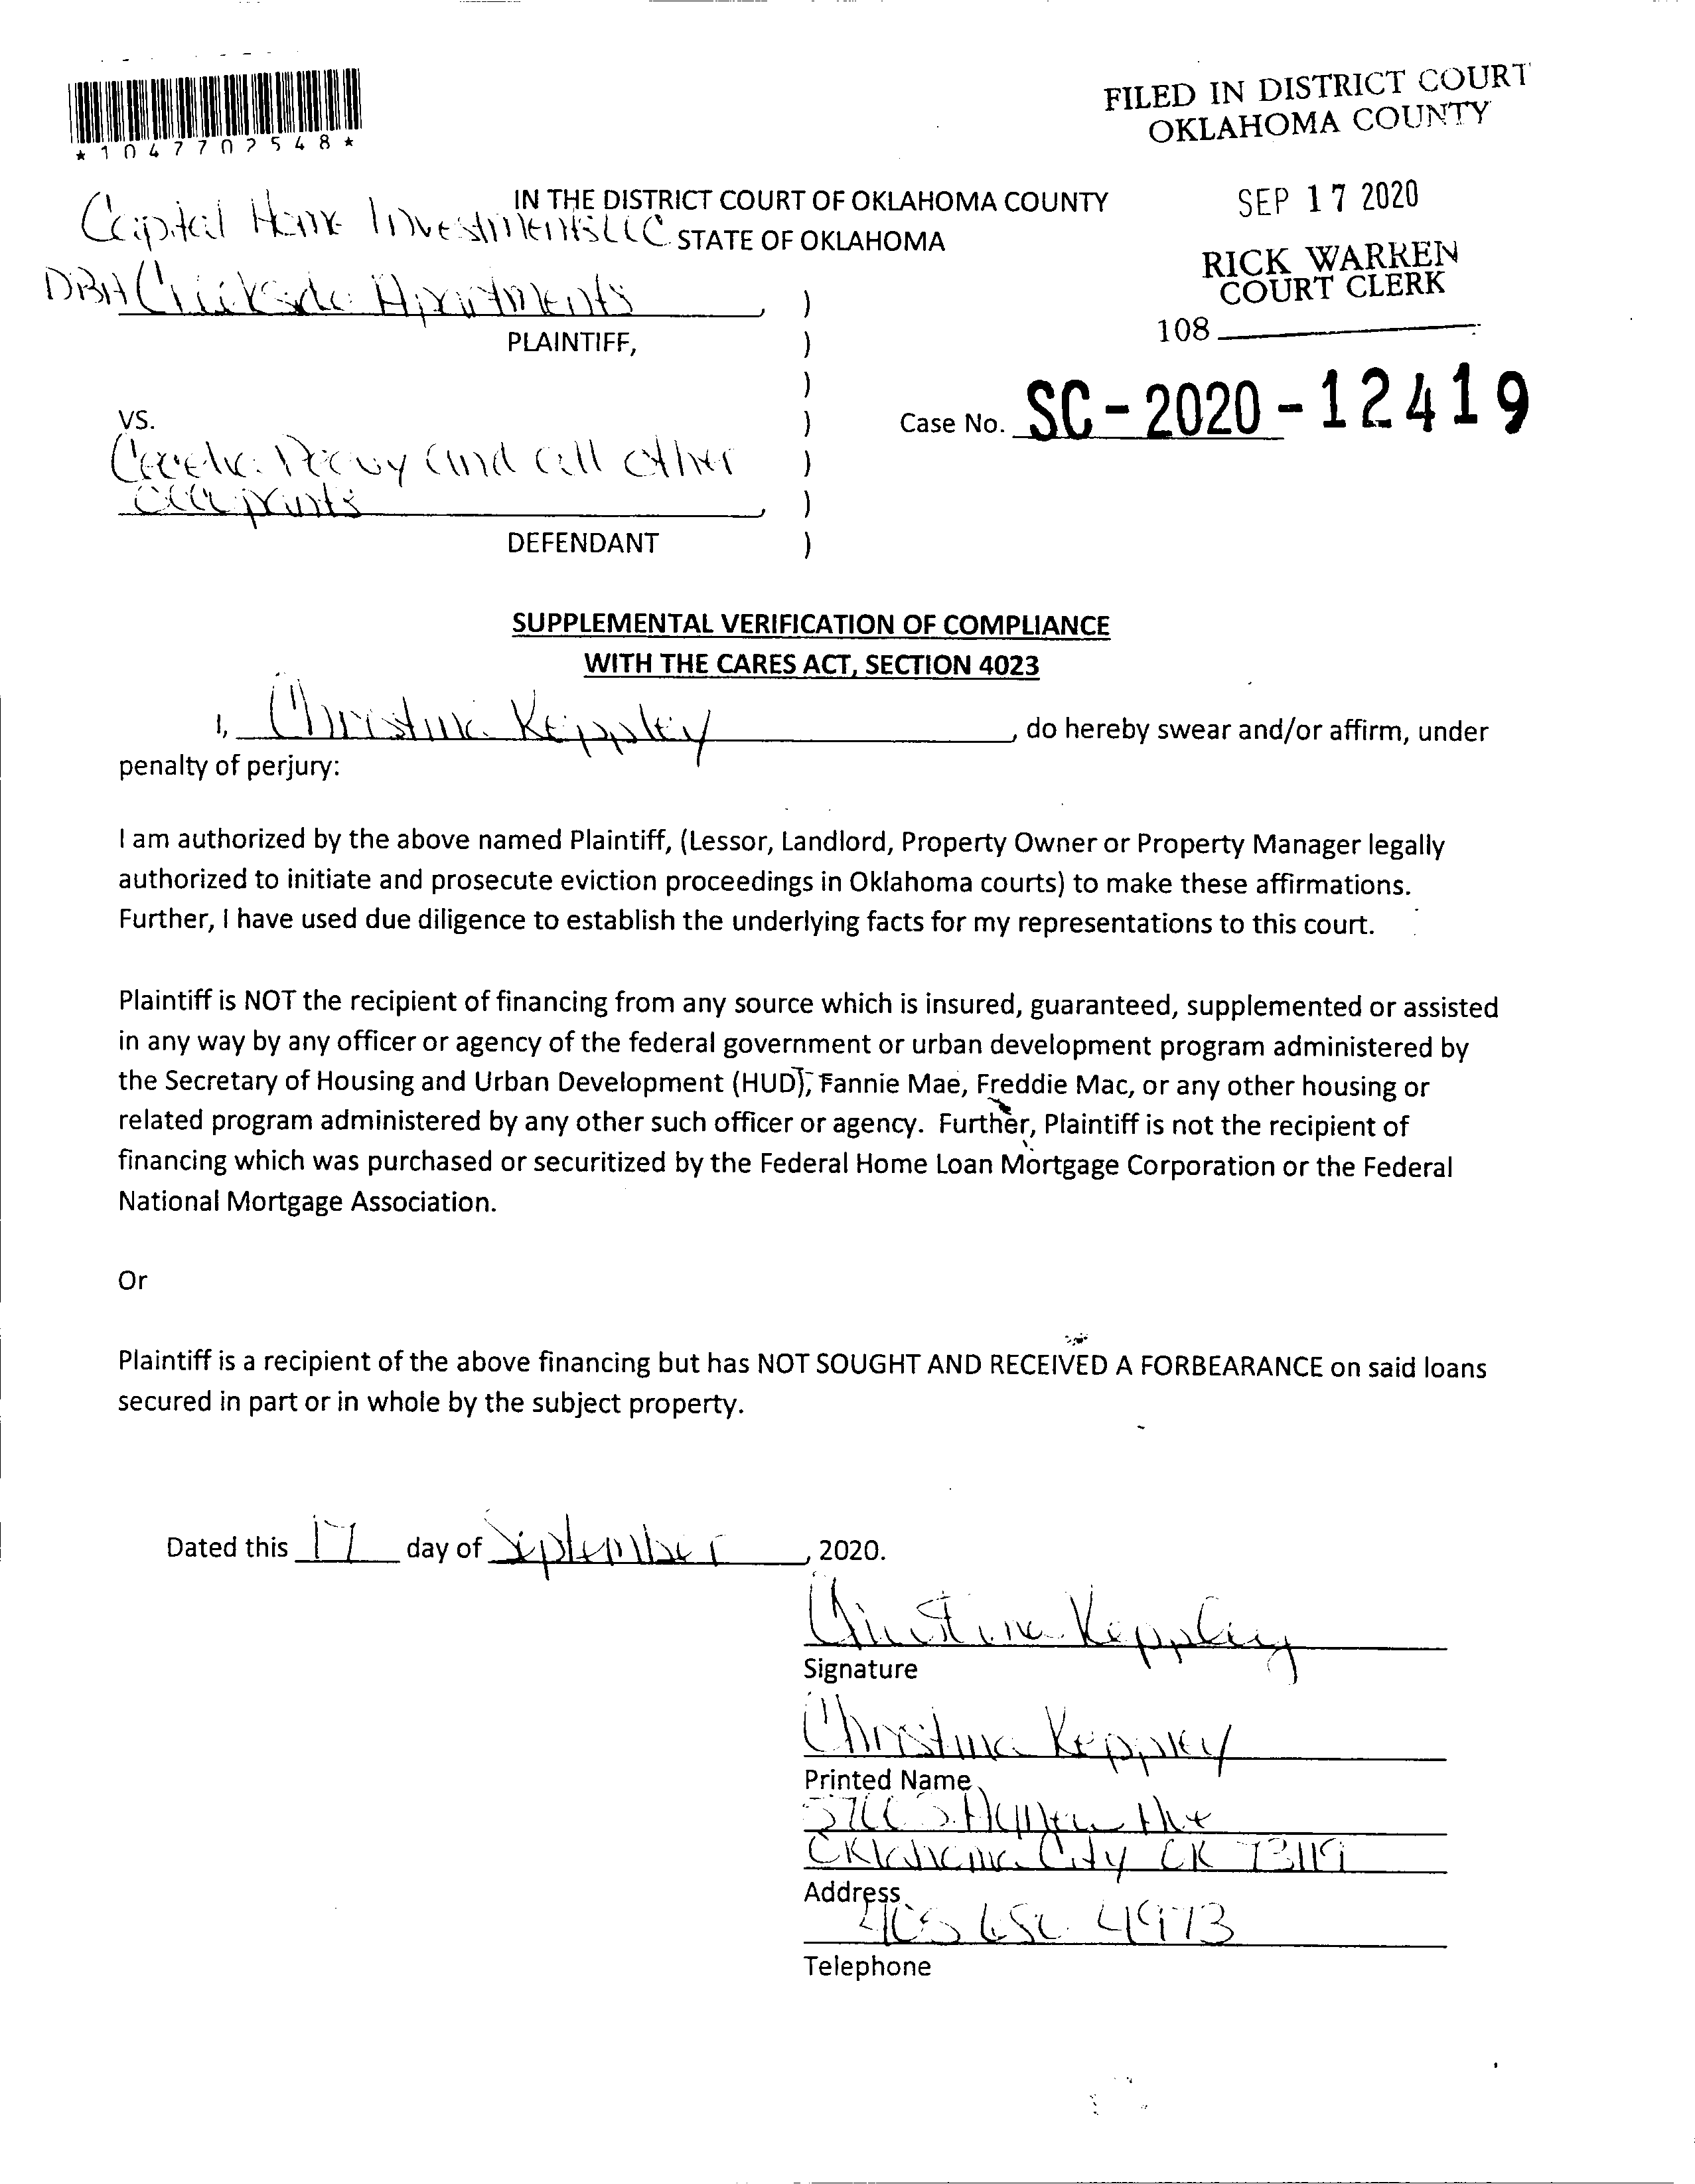 FILED IN DISTRICT COURT
OKLAHOMA COUNTY
*1047702548*
SEP 17 2020
IN THE DISTRICT COURT OF OKLAHOMA COUNTY
Capital Home Investments LLC STATE OF OKLAHOMA
RICK WARREN
COURT CLERK
DBA Creekside Apartments )
108
PLAINTIFF, )
)
VS. ) Case No. SC-2020-12419
and all other )
occupants )
DEFENDANT )
SUPPLEMENTAL VERIFICATION OF COMPLIANCE
WITH THE CARES ACT, SECTION 4023
I, Christina Keppley, do hereby swear and/or affirm, under
penalty of perjury:
I am authorized by the above named Plaintiff, (Lessor, Landlord, Property Owner or Property Manager legally
authorized to initiate and prosecute eviction proceedings in Oklahoma courts) to make these affirmations.
Further, I have used due diligence to establish the underlying facts for my representations to this court.
Plaintiff is NOT the recipient of financing from any source which is insured, guaranteed, supplemented or assisted
in any way by any officer or agency of the federal government or urban development program administered by
the Secretary of Housing and Urban Development (HUD), Fannie Mae, Freddie Mac, or any other housing or
related program administered by any other such officer or agency. Further, Plaintiff is not the recipient of
financing which was purchased or securitized by the Federal Home Loan Mortgage Corporation or the Federal
National Mortgage Association.
Or
Plaintiff is a recipient of the above financing but has NOT SOUGHT AND RECEIVED A FORBEARANCE on said loans
secured in part or in whole by the subject property.
Dated this 17 day of September, 2020.
Christina Keppley
Signature
Christina Keppley
Printed Name
S. Ave
Oklahoma City OK 73119
Address
405 4973
Telephone